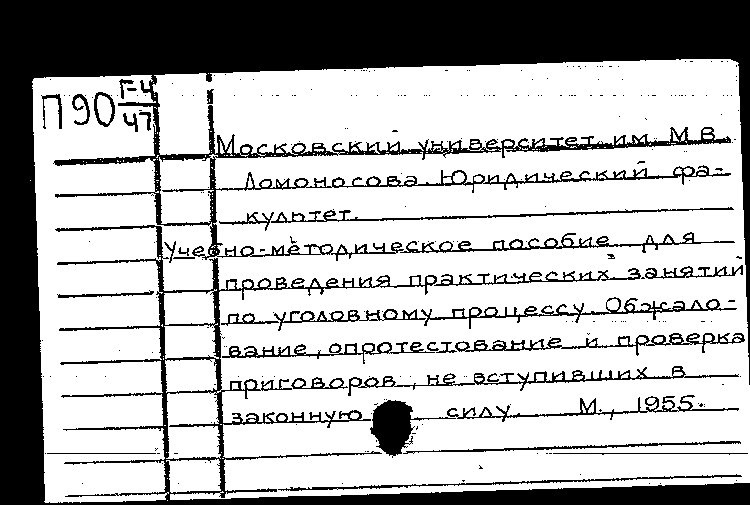 П90 Г-4/47
Московский университет им. М.В.
Ломоносова. Юридический фа-
культет.
Учебно-методическое пособие для
проведения практических занятий
по уголовному процессу. Обжало-
вание, опротестование и проверка
приговоров, не вступивших в
законную силу. М., 1955.